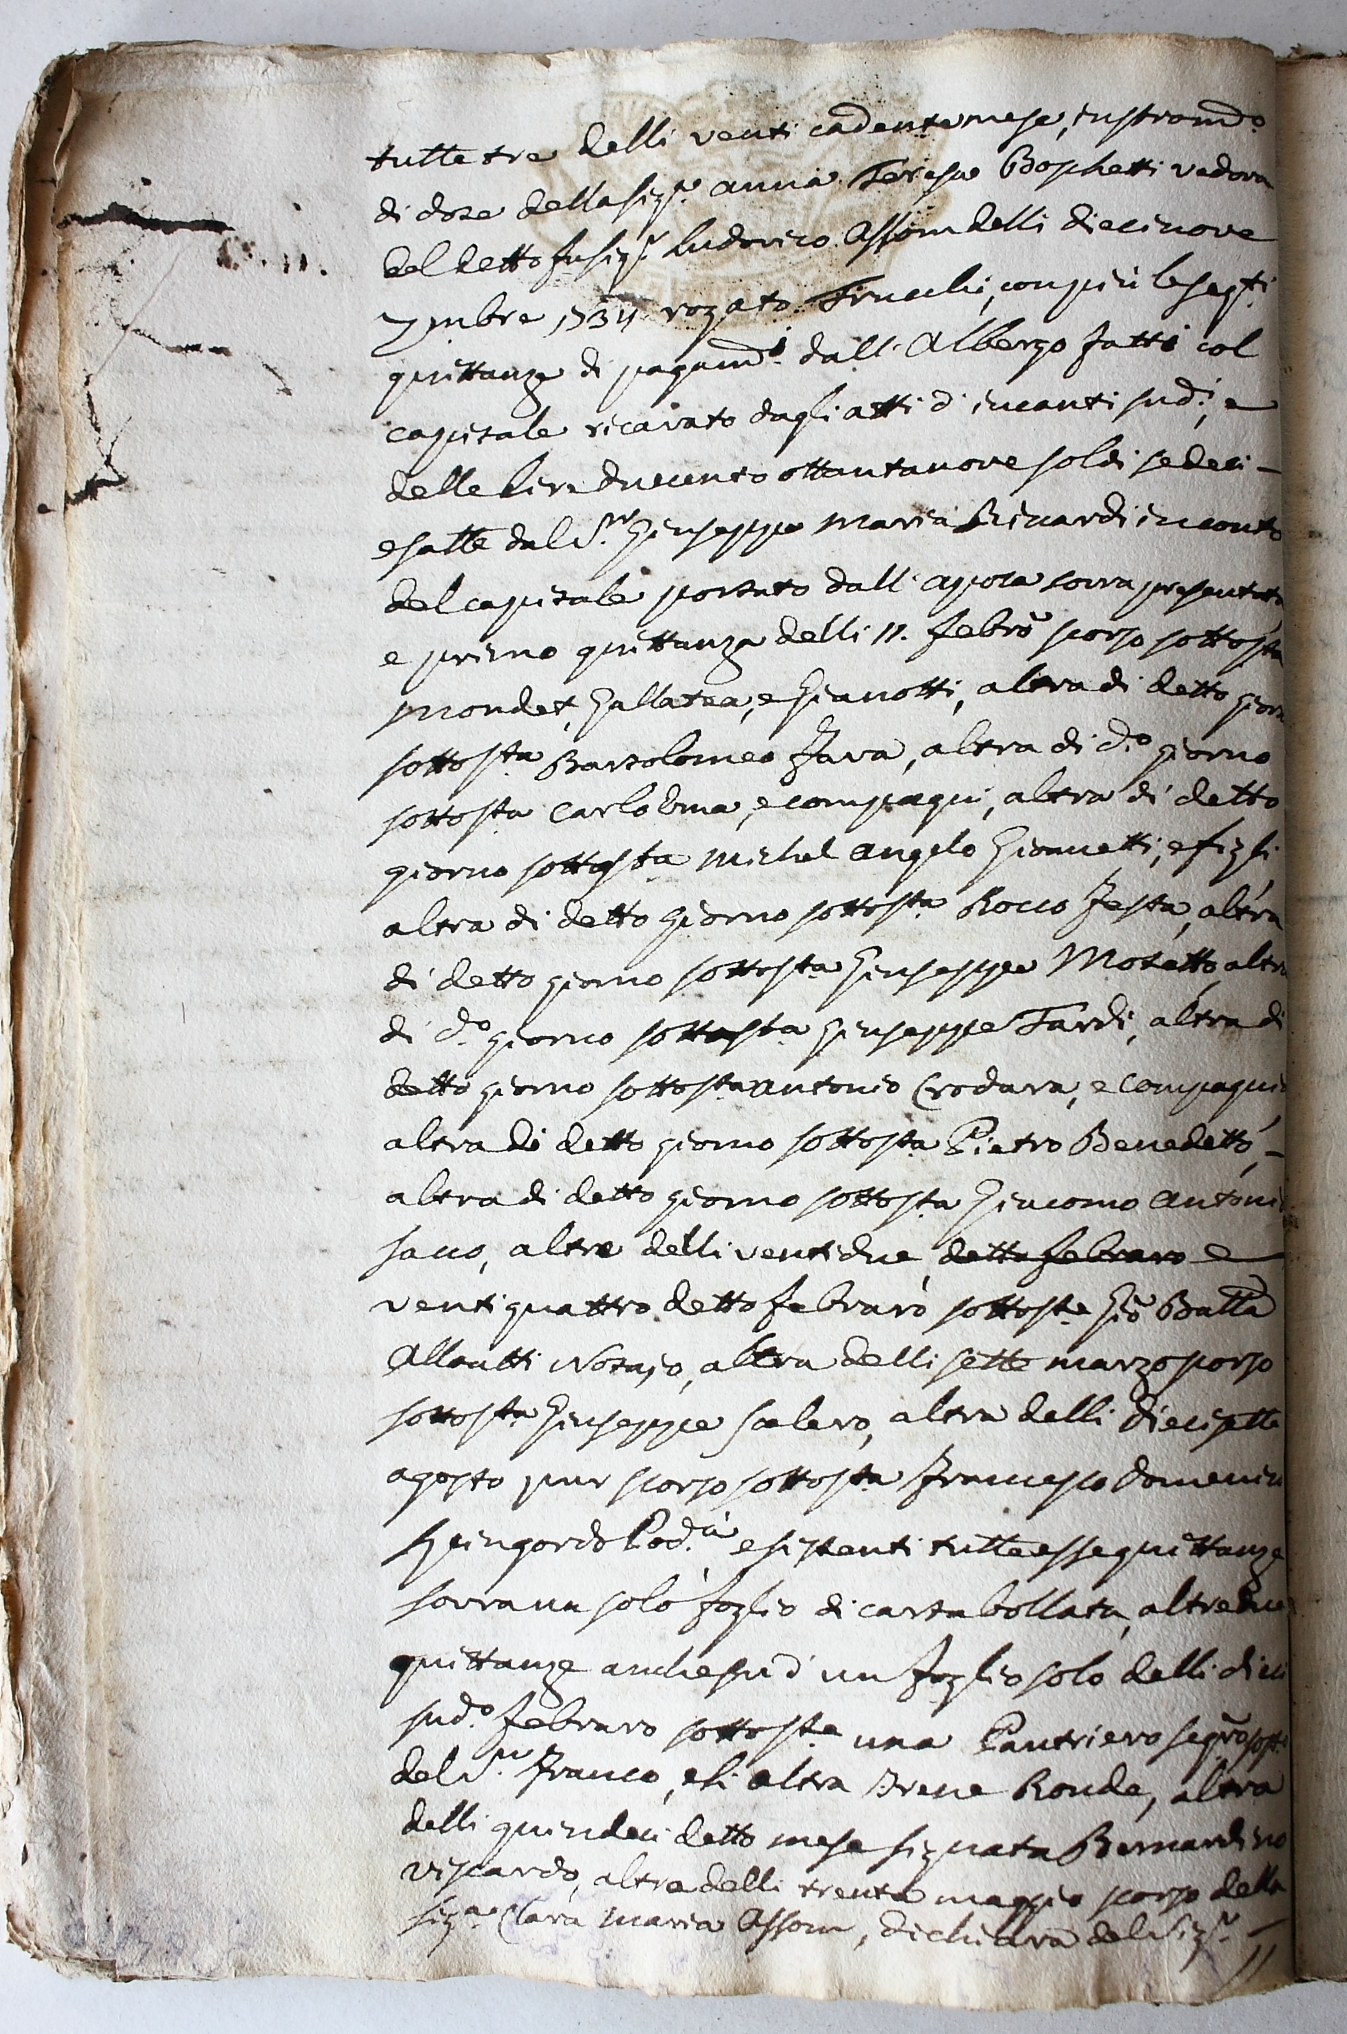 tutte tre delli venti cadente mese, instromd.o
di dote della sig.ra anna Teresa Boschetti vedova
del detto fu sig.r Ludovico Assom delli diecinove
7mbre 1734 rogato Trucchi, con più le seg.ti
quittanze di pagam.ti dall'Albergo fatti col
capitale ricavato dagli atti d'incanti sud.i, e
delle lire duecento ottantanove soldi sedeci –
esatte dal S.r Giuseppe Maria Rinardi in conto
del capitale portato dall'apoca sovra presentata
e primo quittanza delli 11. febrō scorso sottosta
Mondet, Gallatea, e Gianotti, altra di detto giorn
sottost.a Bartolomeo Fava, altra di d.o giorno
sottosta Carlo Ema, e compagni, altra di detto
giorno sottosta Michel Angelo Gionnetti, e figli
altra di detto giorno sottost.a Rocco Festa, altra
di detto giorno sottosta Giuseppe Mosetto, altra
di d.o giorno sottosta Giuseppe Tardi, altra di
detto giorno sottosta Antonio Crodara, e compagni
altra di detto giorno sottosta Pietro Benedetto, –
altra di detto giorno sottosta Giacomo Antonio
Sacco, altre delli ventidue, detto febraro e
venti quattro detto febraro sottoste Giō Batta
Allautti Notajo, altra delli sette marzo scorso
sottosta Giuseppe Scalero, altra delli diecisette
agosto pur scorso sottosta Francesco Domenico
esistenti tutte esse quittanze
sovra un solo foglio di carta bollata, altre due
quittanze anche su d'un foglio solo delli dieci
sud.o febraro sottoste una Pautriero segrō sost.
del S.r Franco, e li altra Irene Ronde, altra
delli quindeci detto mese signata Bernardino
Viscardo, altra delli trenta maggio scorso della
sig.a Clara Maria Assom, dichiara del sig.r –